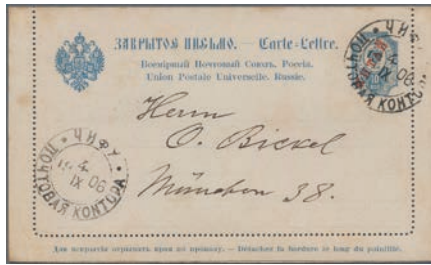 ЗАКРЫТОЕ ПИСЬМО. — Carte-Lettre.
Всемірный Почтовый Союзъ. Россія.
Union Postale Universelle. Russie.
ЧИФУ
4
IX 06
ПОЧТОВАЯ КОНТОРА
Herrn
O. Bickel
München 38.
ЧИФУ
4
IX 06
ПОЧТОВАЯ КОНТОРА
Для вскрытія оторвать края по проколу. — Détacher la bordure le long du pointillé.